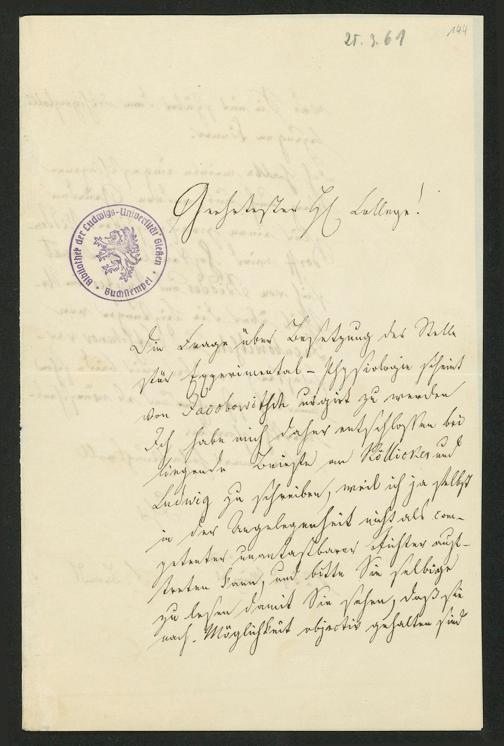 144
25.3.61
Bibliothek der Ludwigs-Universität Gießen
Buchstempel
Geehrtester H College!
Die Frage über Besetzung der Stelle
für Experimental-Physiologie scheint
von Jacobowitsch urgirt zu werden
Ich habe mich daher entschlossen bei
liegende Briefe an Köllicker und
Ludwig zu schreiben, weil ich ja selbst
in der Angelegenheit nicht als com-
petenter unantastbarer Richter auf-
treten kann, und bitte Sie selbige
zu lesen damit Sie sehen, daß sie
nach Möglichkeit objectiv gehalten sind